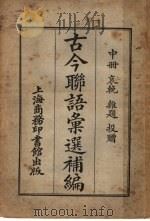 中册 哀輓 雜題 投贈
古今聯語彙選補編
上海商務印書館出版